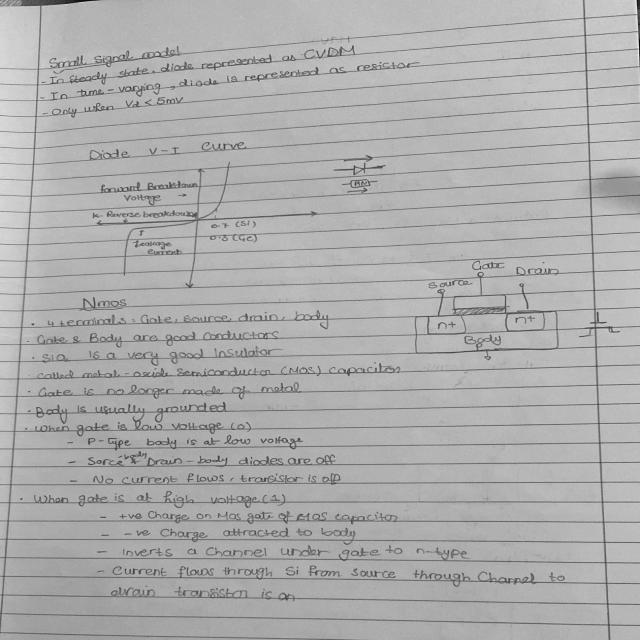 Small signal model
- In steady state, diode represented as CVDM
- In time-varying, diode is represented as resistor
- Only when Vd < 5mv
Diode V-I Curve
Forward Breakdown
Voltage →
Reverse breakdown
0.7 (Si)
0.3 (Ge)
Leakage
Current
Gate
Source Drain
n+ n+
Body
Nmos
· 4 terminals: Gate, source, drain, body
· Gate & Body are good conductors
· SiO2 is a very good Insulator
· called metal-oxide semiconductor (MOS) capacitor
· Gate is no longer made of metal
· Body is usually grounded
· When gate is low voltage (0)
- P-type body is at low voltage
- Sorce-body & Drain-body diodes are off
- No current flows, transistor is off
· When gate is at high voltage (1)
- +ve Charge on Mos gate of MOS capacitor
- -ve Charge attracted to body
- Inverts a Channel under gate to n-type
- Current flows through Si from source through Channel to
drain transistor is on